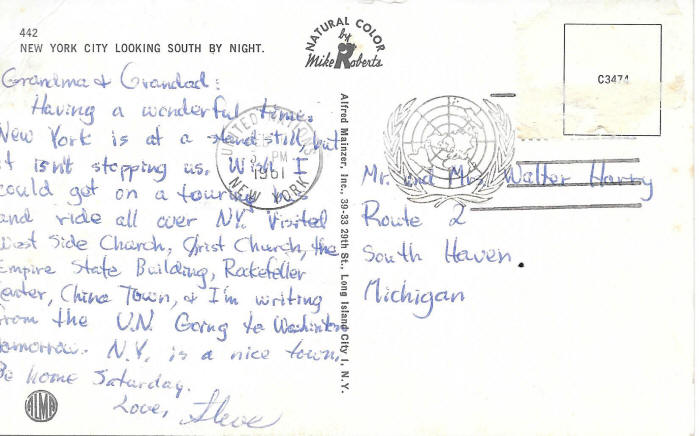 442
NEW YORK CITY LOOKING SOUTH BY NIGHT.
NATURAL COLOR
by
Mike Roberts
C3474
Grandma & Grandad:
Having a wonderful time.
New York is at a stand still, but
it isn't stopping us. Wish I
could get on a touring bus
and ride all over N.Y. Visited
West Side Church, Christ Church, the
Empire State Building, Rockefeller
Center, China Town, & I'm writing
from the U.N. Going to Washington
tomorrow. N.Y. is a nice town.
Be home Saturday.
Love, Steve
UNITED NATIONS
PM
1961
NEW YORK
Alfred Mainzer, Inc., 39-33 29th St., Long Island City 1, N.Y.
Mr. and Mrs. Walter Harry
Route 2
South Haven.
Michigan
ALMA